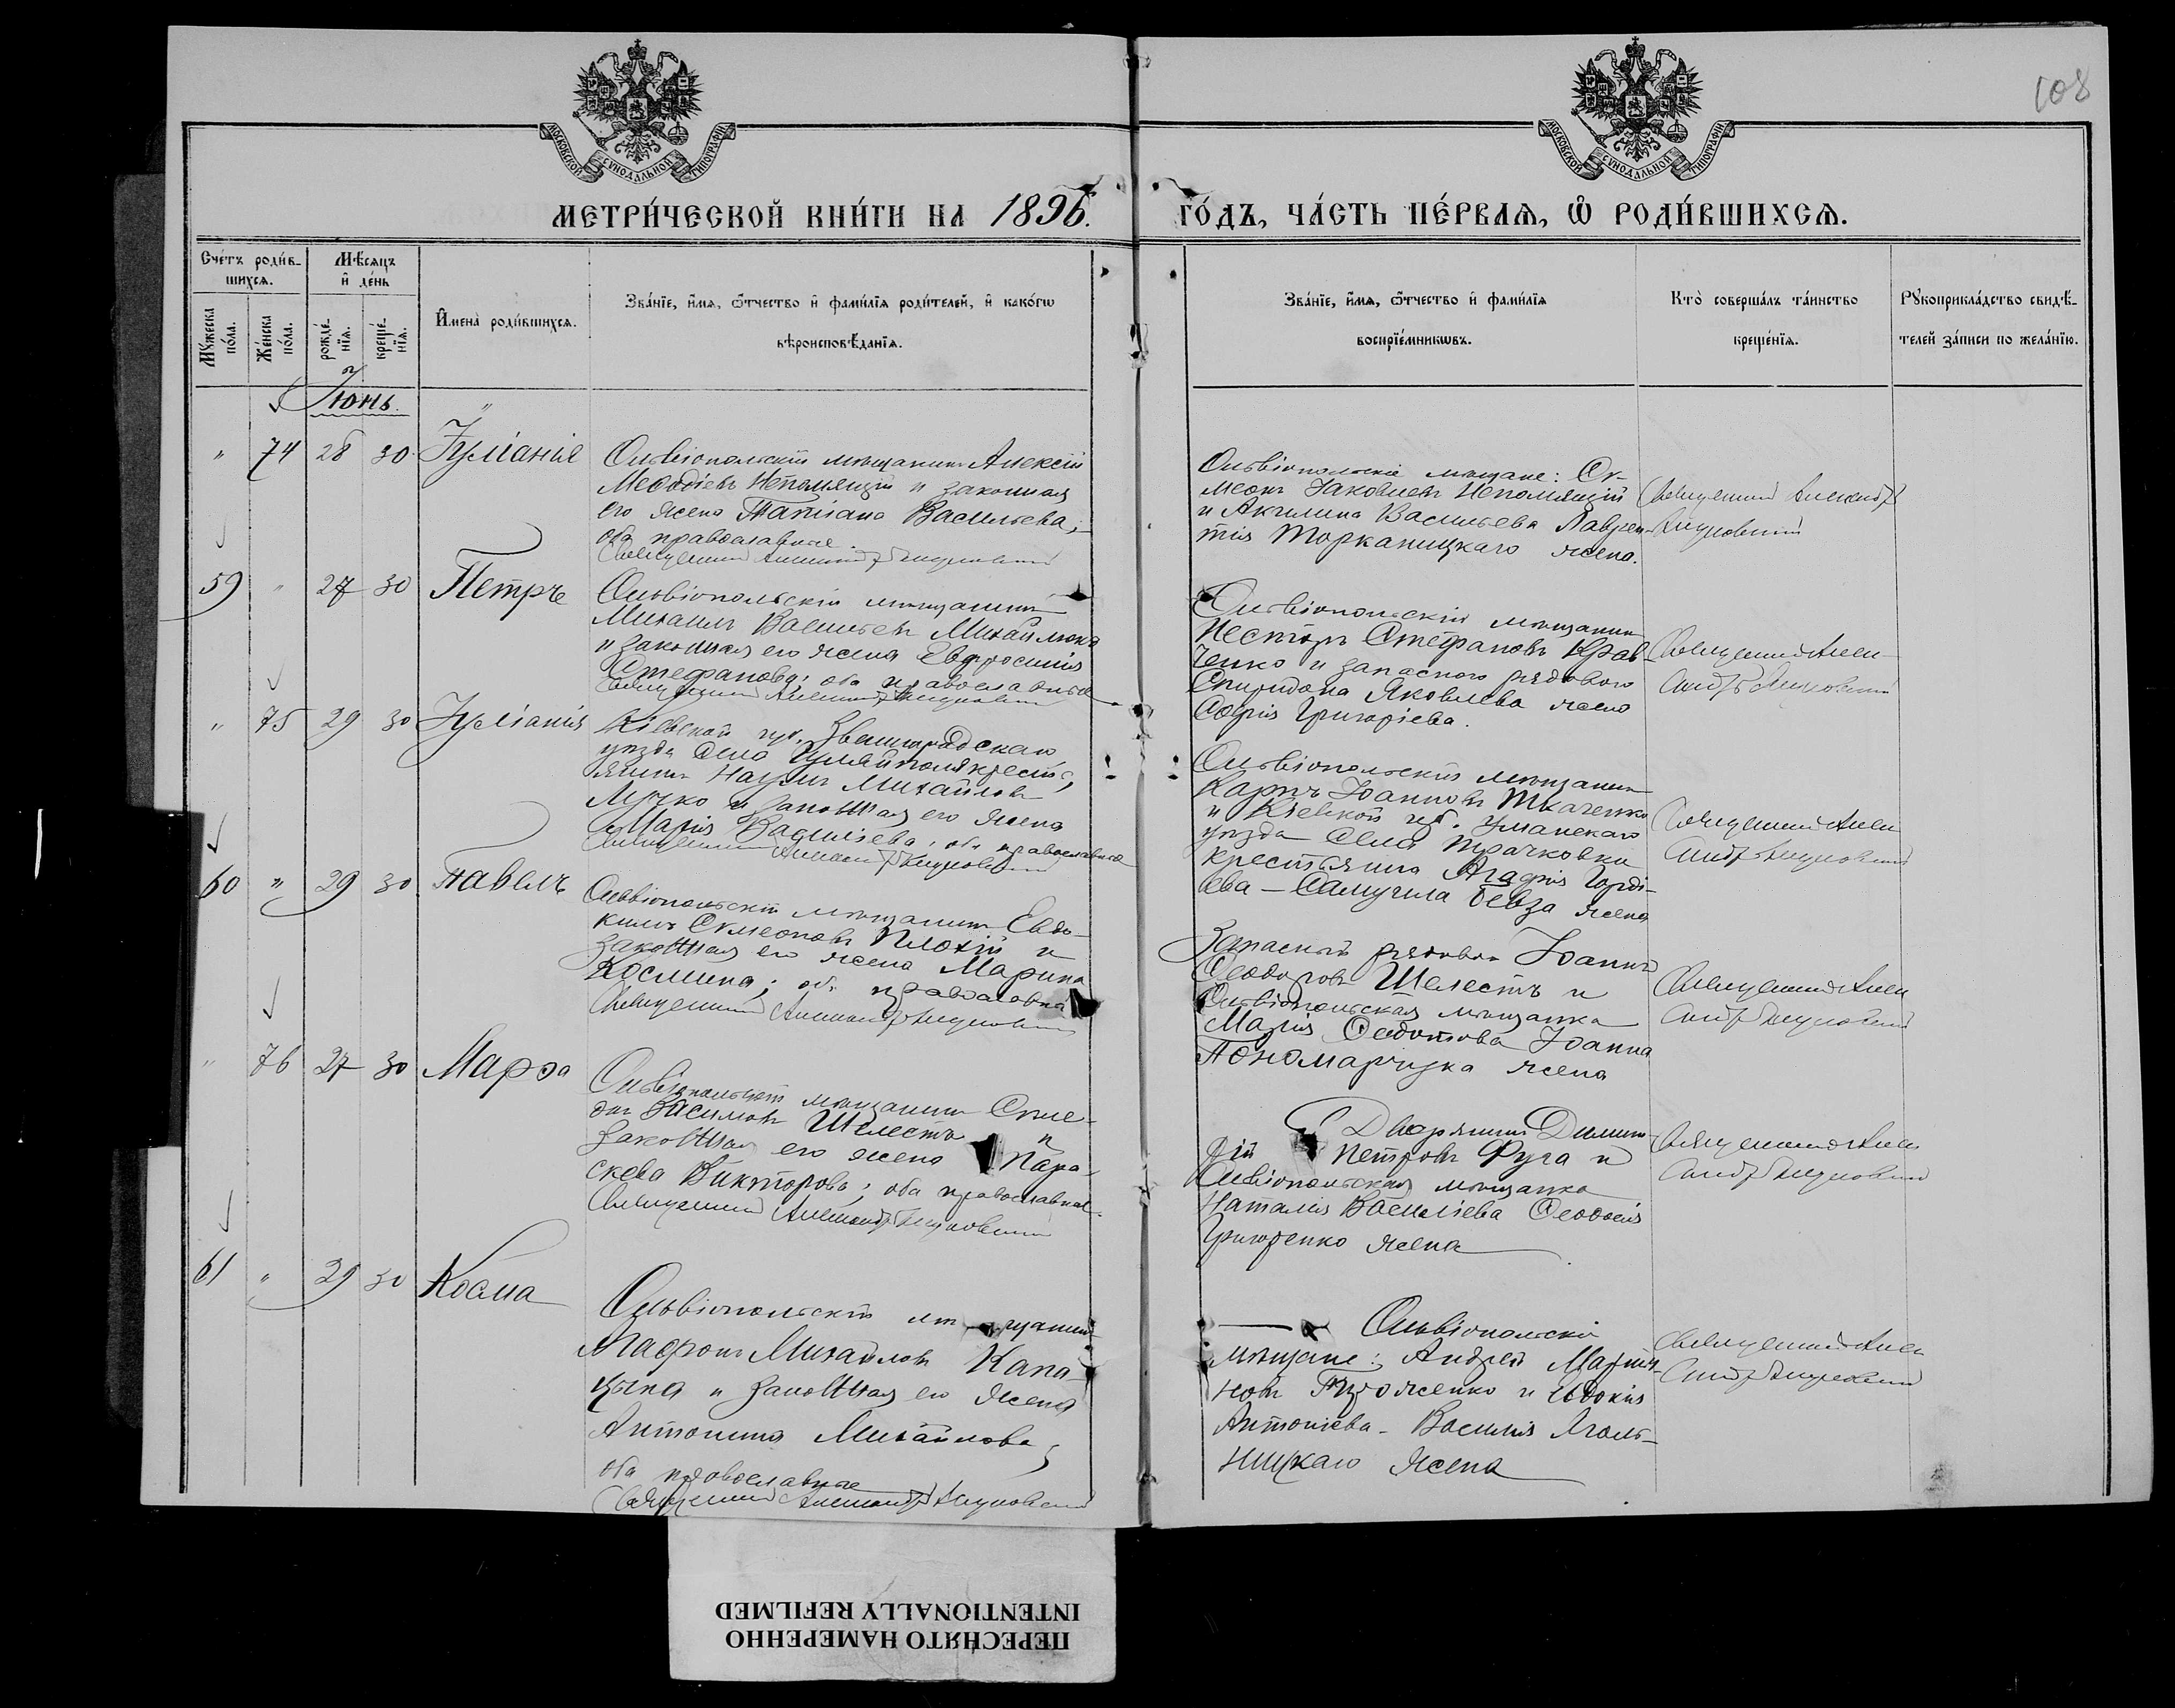 108
МОСКОВСКОЙ СѴНОДАЛЬНОЙ ТИПОГРАФІИ
МОСКОВСКОЙ СѴНОДАЛЬНОЙ ТИПОГРАФІИ
МЕТРИ́ЧЕСКОЙ КНИ́ГИ НА 1896.
ГО́ДЪ, ЧА́СТЬ ПЕ́РВАѦ, Ѡ҆ РОДИ́ВШИХСѦ.
Сче́тъ роди́в-
шихсѧ.
Мѣ́сѧцъ
и҆ де́нь
Мꙋ́жеска
по́ла.
Же́нска
по́ла.
рожде́-
нїѧ.
креще́-
нїѧ.
И҆мена̀ роди́вшихсѧ.
Зва́нїе, и҆́мѧ, ѻ҆́тчество и҆ фами́лїѧ роди́телей, и҆ како́гѡ
вѣроисповѣ́данїѧ.
Зва́нїе, и҆́мѧ, ѻ҆́тчество и҆ фами́лїѧ
воспрїе́мникѡвъ.
Кто̀ соверша́лъ та́инство
креще́нїѧ.
Рꙋкоприкла́дство свидѣ́-
телей за́писи по жела́нїю.
Іюнь.
" 74 28 30 Іуліанія
Ольвіопольскій мѣщанинъ Алексій
Меѳодіевъ Непомнящій и законная
его жена Татіана Васильева;
оба православные.
Священникъ Александръ
Ольвіопольскіе мѣщане: Си-
меонъ Іаковлевъ Непомнящій
и Акилина Васильева Лаврен-
тія жена.
Священникъ Александръ
59 " 27 30 Петръ
Ольвіопольскій мѣщанинъ
Михаилъ Васильевъ
и законная его жена Евфросинія
Стефанова; оба православные
Священникъ Александръ
Ольвіопольскій мѣщанинъ
Несторъ Стефановъ Крав-
ченко и запаснаго рядового
Спиридона Яковлева жена
Софія Григоріева.
Священникъ Алек-
сандръ
" 75 29 30 Іуліанія
Кіевской губ. Звенигородскаго
уѣзда села крестья-
янинъ Наумъ Михайловъ
и законная его жена
Марія Василіева; оба православные
Священникъ Александръ
Ольвіопольскій мѣщанинъ
Карпъ Іоанновъ Ткаченко
и Кіевской губ. Уманскаго
уѣзда села
крестьянина Агафія Горді-
ева — Самуила жена
Священникъ Алек-
сандръ
60 " 29 30 Павелъ
Ольвіопольскій мѣщанинъ Евдо-
кимъ Симеоновъ Плохій и
законная его жена Марина
Космина; оба православные
Священникъ Александръ
Запасный рядовой Іоаннъ
Ѳеодоровъ Шелестъ и
Ольвіопольская мѣщанка
Марія Ѳедотова Іоанна
Пономарчука жена
Священникъ Алек-
сандръ
" 76 27 30 Марѳа
Ольвіопольскій мѣщанинъ
Шелестъ и
законная его жена Пара-
скева Викторова; оба православные.
Священникъ Александръ
Дворянинъ Димит-
рій Петровъ и
Ольвіопольская мѣщанка
Наталія Василіева Ѳеодосія
Григоренко жена
Священникъ Алек-
сандръ
61 " 29 30 Косма
Ольвіопольскій мѣщанинъ
Михайловъ
и законная его жена
Антонина Михайлова;
оба православные
Священникъ Александръ
Ольвіопольскіе
мѣщане: Андрей
и Евдокія
Антоніева - Василія
жена
Священникъ Алек-
сандръ
ПЕРЕСНЯТО НАМЕРЕННО
INTENTIONALLY REFILMED